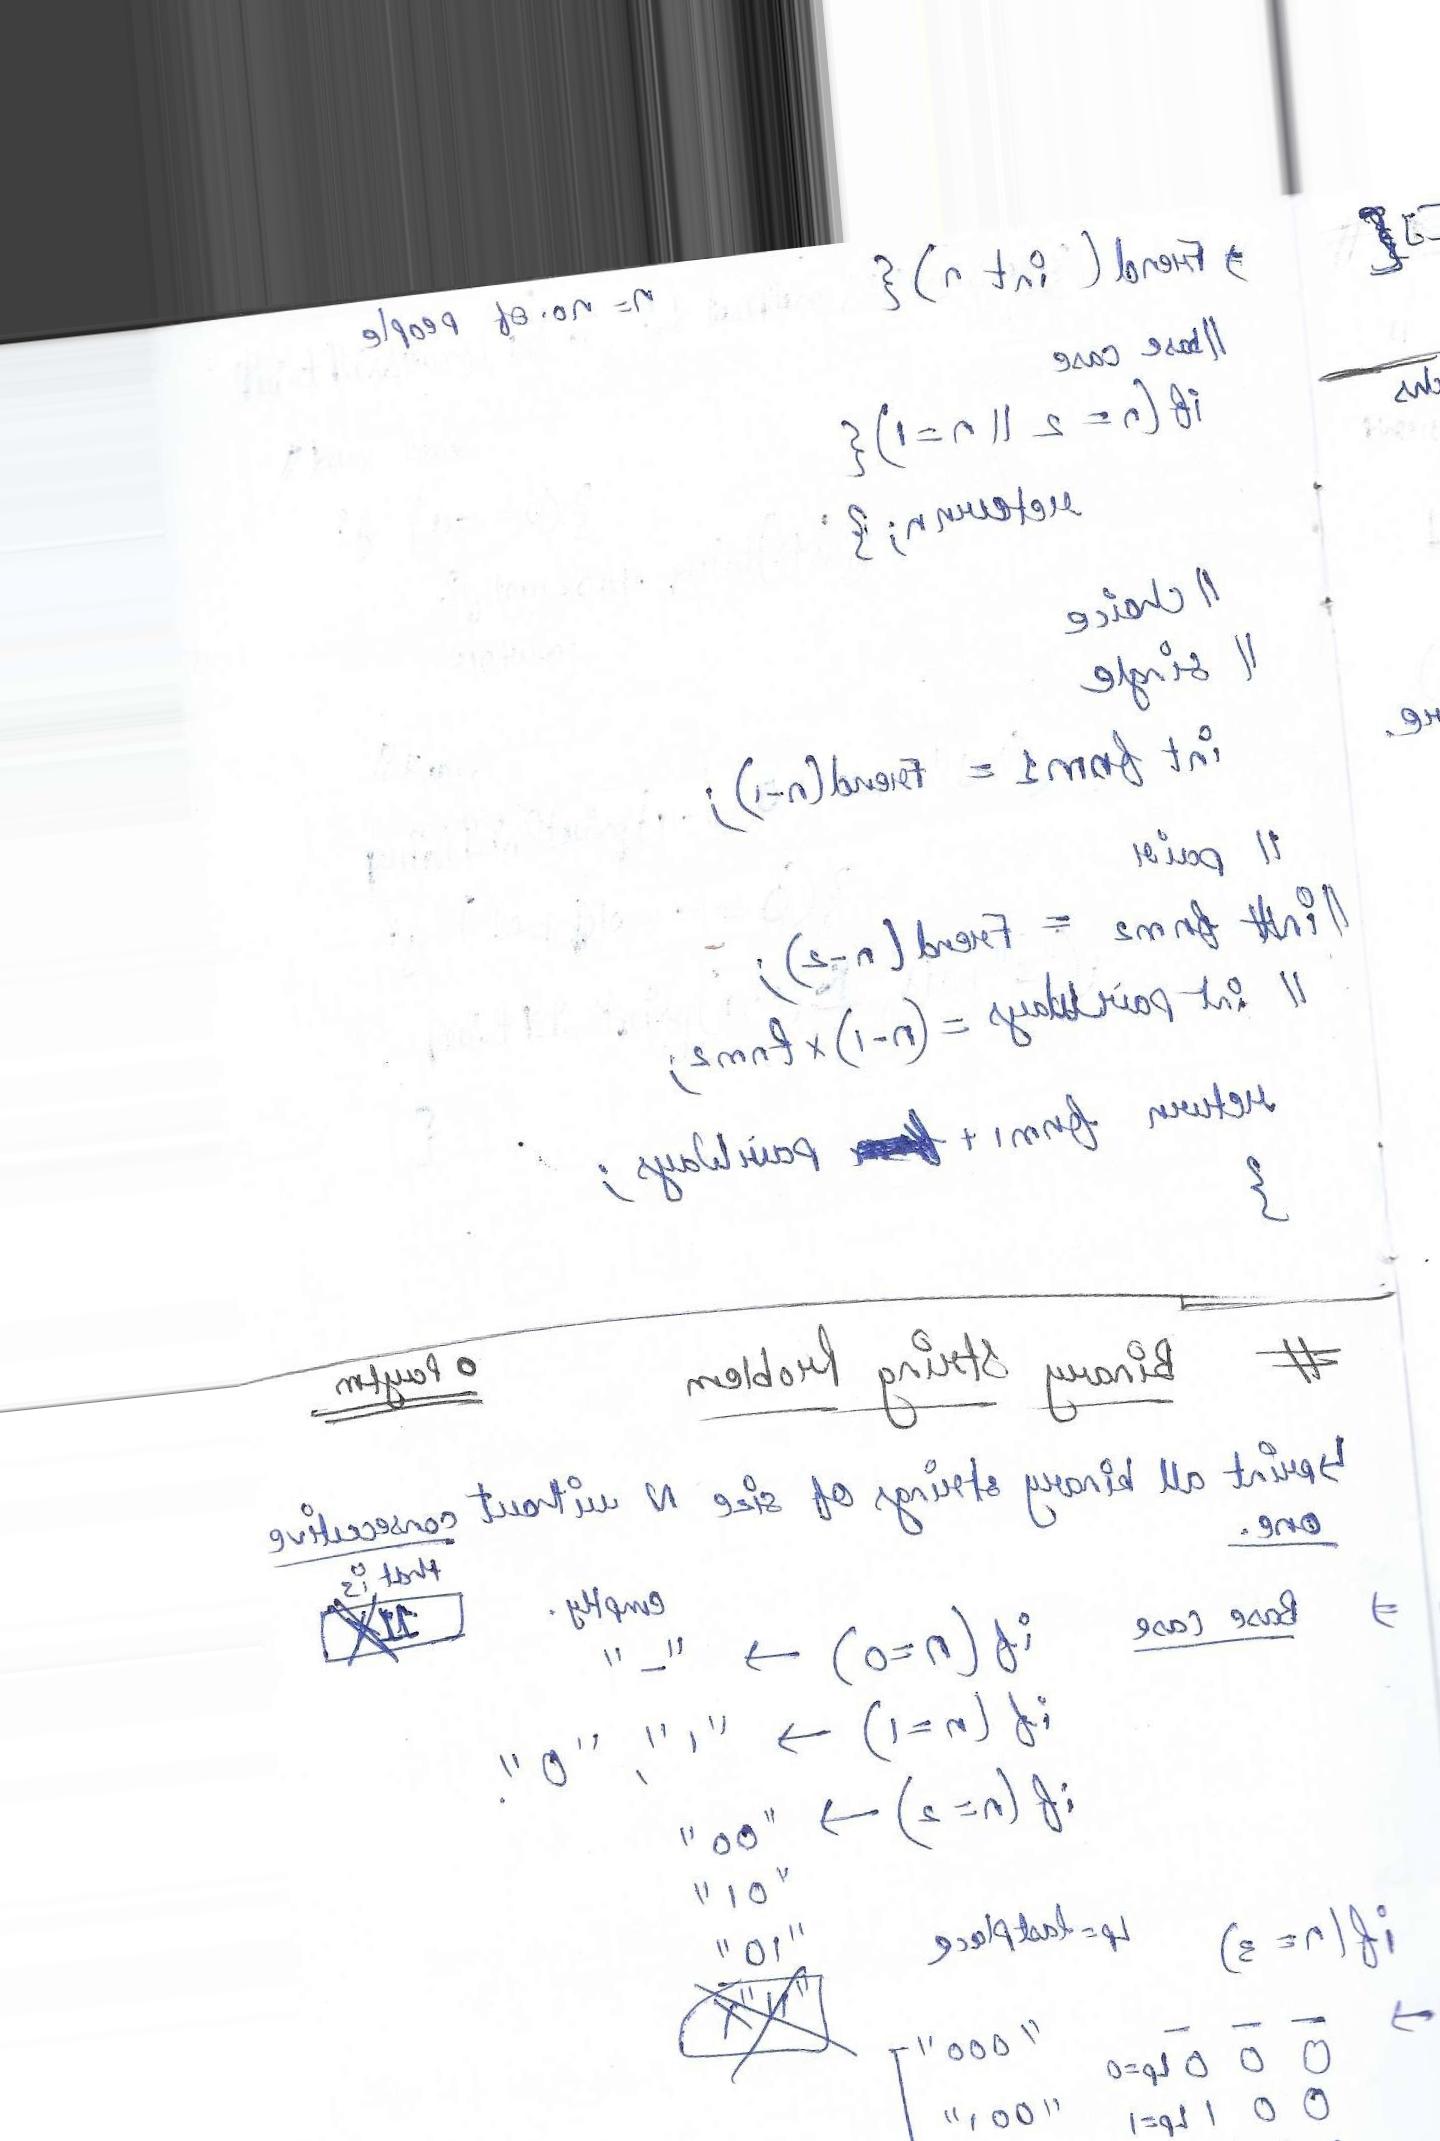 ⇒ Friend (int n) {
n = no. of people
//base case
if (n = 2 || n = 1) {
return n; }
// choice
// single
int fnm1 = Friend(n-1);
// pair
// int fnm2 = Friend(n-2);
// int pairWays = (n-1) x fnm2;
return fnm1 + pairWays;
}
# Binary String Problem o Paytm
↳ print all binary strings of size N without consecutive
one.
that is
11
⇒ Base case if (n=0) → "-" empty.
if (n=1) → "1", "0".
if (n=2) → "00"
"01"
"10"
"11"
if (n=3) Lp=lastplace
→ _ _ _
0 0 0 Lp=0 "000"
0 0 1 Lp=1 "001"